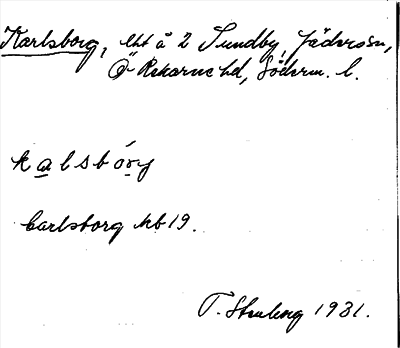 Karlsborg, lht å 2 Sundby, Jäders sn,
Ö-Rekarne hd, Söderm. l.
kalsbóry
Carlsborg kb 19.
T. Streling 1931.